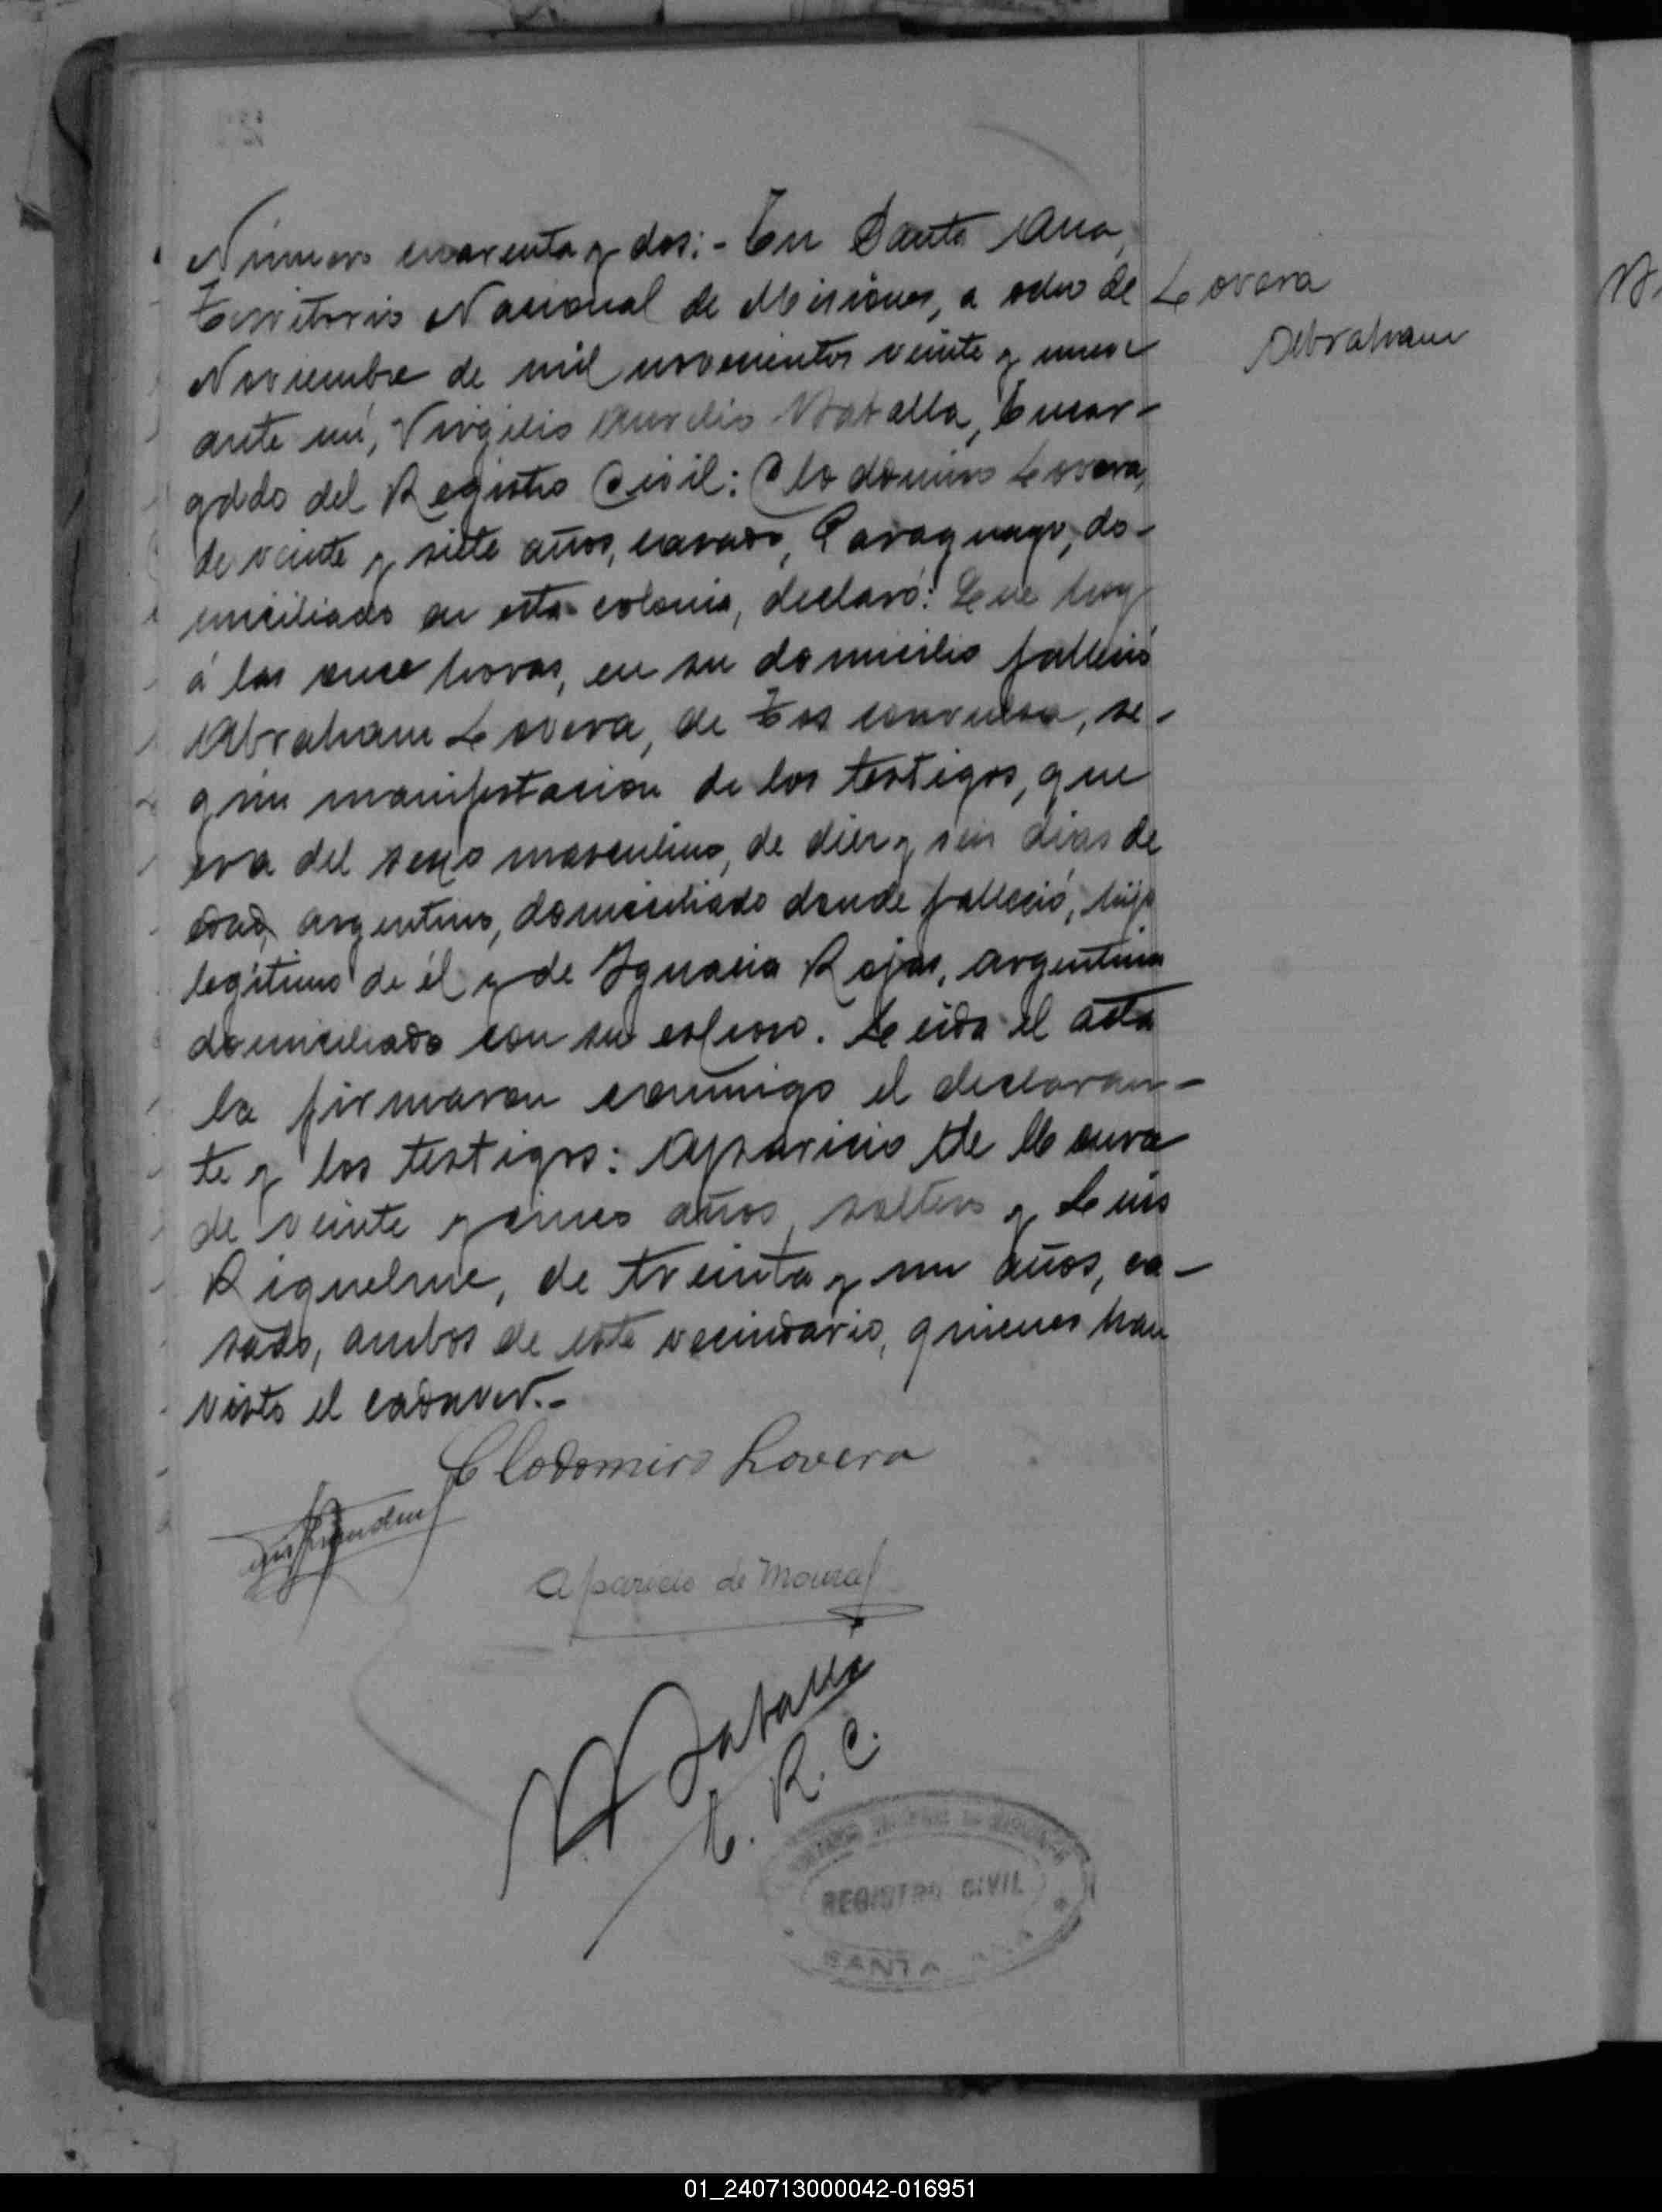 Número cuarenta y dos:- En Santa Ana,
Territorio Nacional de Misiones, a ocho de
Noviembre de mil novecientos veinte y nueve
ante mí, Virgilio Aurelio Batalla, Encar-
gado del Registro Civil: Clodomiro Lovera,
de veinte y siete años, casado, Paraguayo, do-
miciliado en esta colonia, declaró: Que hoy
á las once horas, en su domicilio falleció
Abraham Lovera, de Tos convulsa, se-
gún manifestacion de los testigos, que
era del sexo masculino, de diez y seis dias de
edad, argentino, domiciliado donde falleció, hijo
legítimo de él y de Ignacia Rojas, argentina
domiciliado con su esposo. Leida el acta
la firmaron conmigo el declaran-
te y los testigos: Aparicio de Moura
de veinte y cinco años, soltero y Luis
Riquelme, de treinta y un años, ca-
sado, ambos de este vecindario, quienes han
visto el cadaver.-
Lovera
Abraham
Clodomiro Lovera
Aparicio de Moura
Batalla
E. R. C.
REGISTRO CIVIL
SANTA ANA
01_240713000042-016951